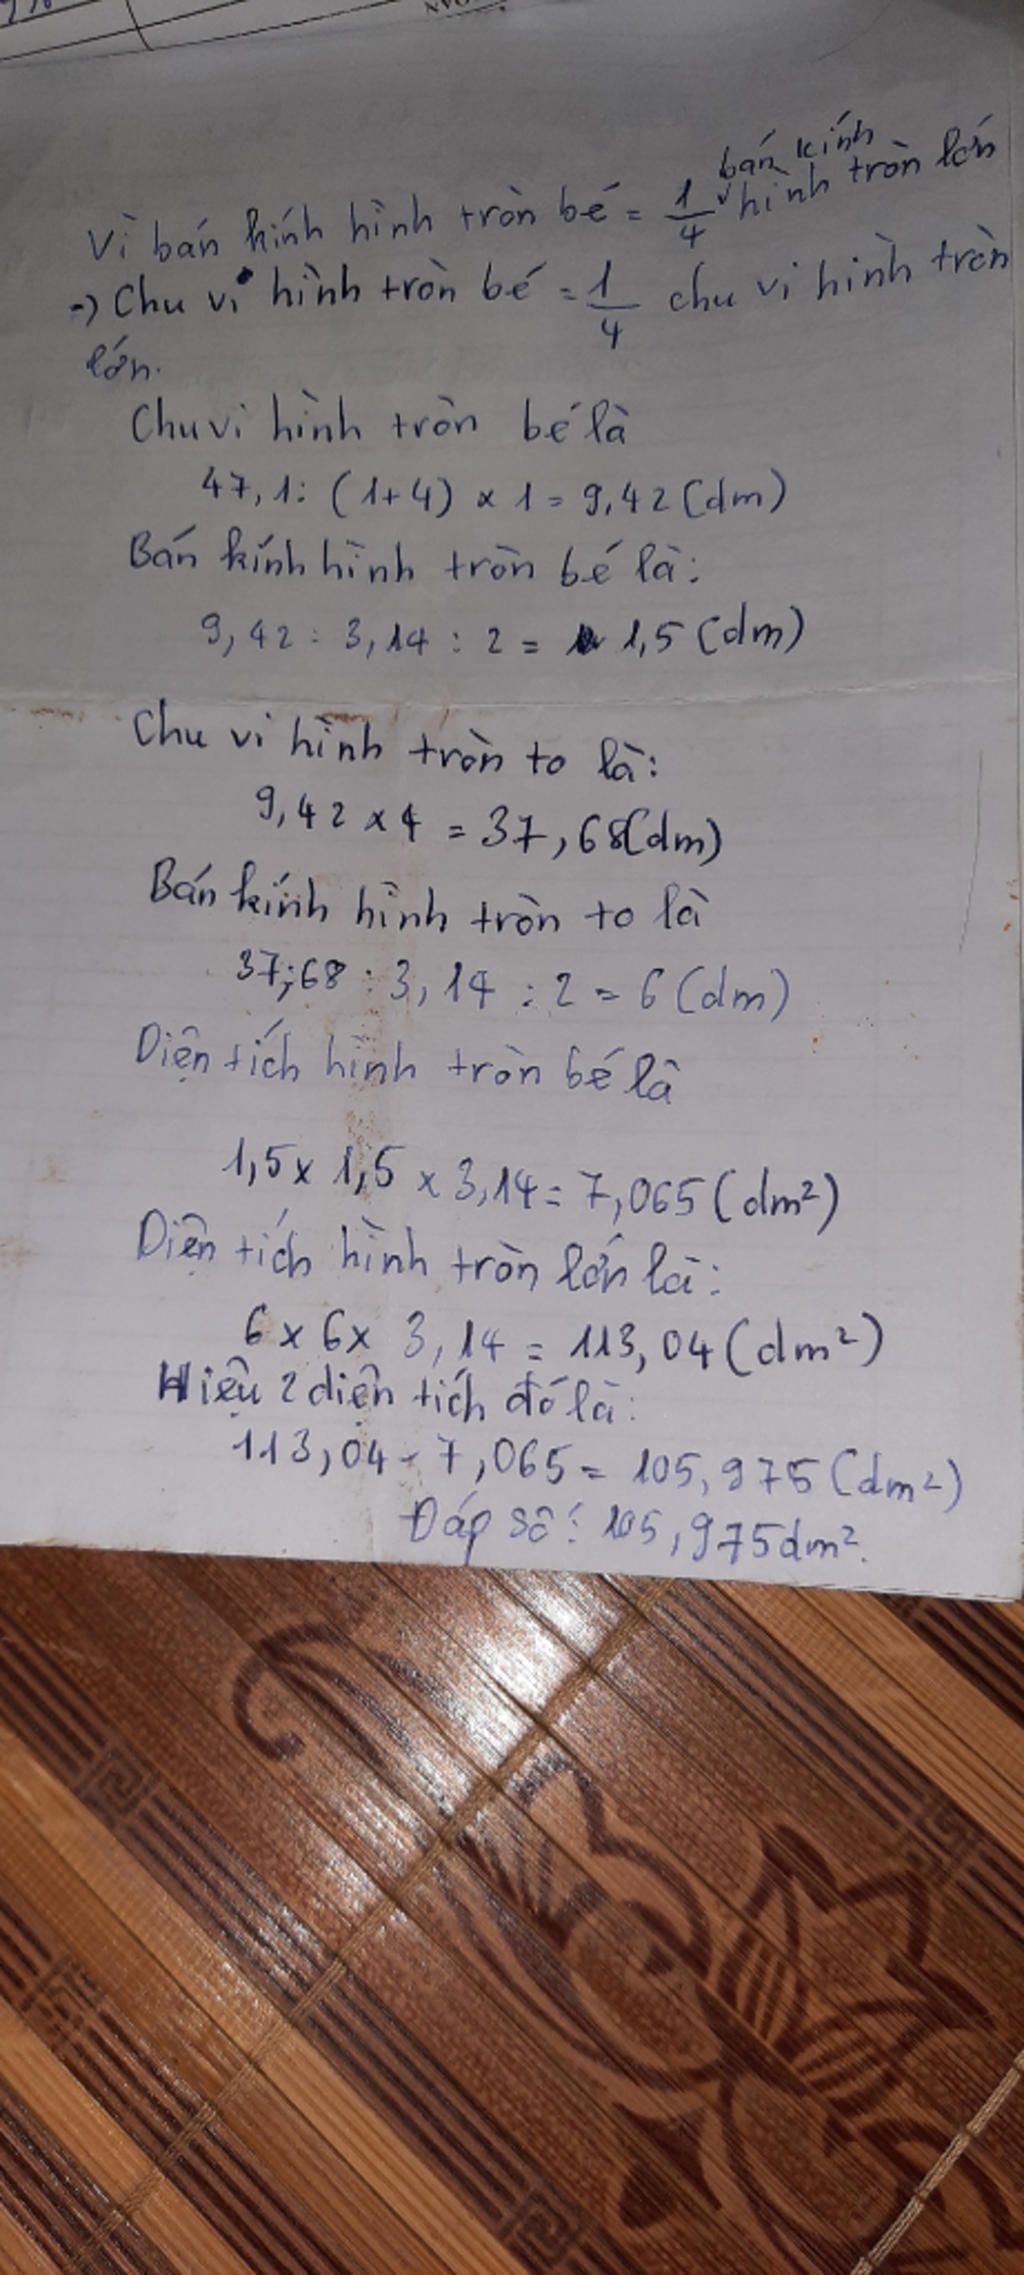 Vì bán kính hình tròn bé = 1/4 bán kính hình tròn lớn
=> Chu vi hình tròn bé = 1/4 chu vi hình tròn
lớn.
Chu vi hình tròn bé là
47,1 : (1+4) x 1 = 9,42 (dm)
Bán kính hình tròn bé là:
9,42 : 3,14 : 2 = 1,5 (dm)
Chu vi hình tròn to là:
9,42 x 4 = 37,68 (dm)
Bán kính hình tròn to là
37,68 : 3,14 : 2 = 6 (dm)
Diện tích hình tròn bé là
1,5 x 1,5 x 3,14 = 7,065 (dm²)
Diện tích hình tròn lớn là:
6 x 6 x 3,14 = 113,04 (dm²)
Hiệu 2 diện tích đó là:
113,04 - 7,065 = 105,975 (dm²)
Đáp số: 105,975dm².